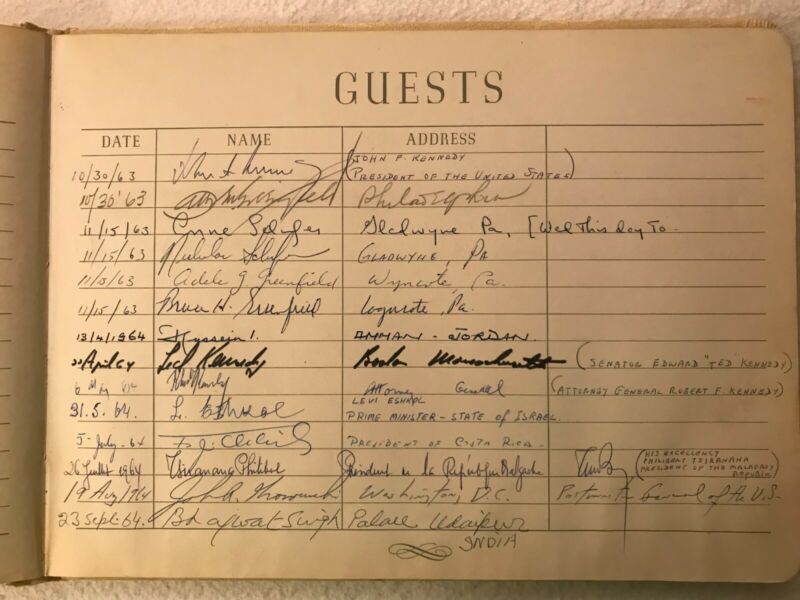 GUESTS
DATE NAME ADDRESS
10/30/63 (JOHN F. KENNEDY
PRESIDENT OF THE UNITED STATES)
10/30'63 Philadelphia
11/15/63 Gladwyne Pa, [Wed This day To-
11/15/63 GLADWYNE, PA
11/15/63 Adele G Greenfield Wyncote Pa.
11/15/63 Bruce H. Greenfield Wyncote, Pa.
13/4/1964 Hussein I. AMMAN - JORDAN.
22 April 64 Ted Kennedy Boston Massachusetts (SENATOR EDWARD "TED" KENNEDY)
6 64 Attorney General (ATTORNEY GENERAL ROBERT F. KENNEDY)
LEVI ESHKOL
31.5.64. L. ESHKOL PRIME MINISTER - STATE of ISRAEL.
5- July - 64 PRESIDENT OF COSTA RICA -
26 Juillet 1964 Tsiranana Philibert Président de la République Malgache (HIS EXCELLENCY
PHILIBERT TSIRANANA
PRESIDENT OF THE MALAGASY
REPUBLIC)
19 Aug/64 Washington, D.C. Postmaster General of the U.S.
23 Sept. 64. Bhagwat Singh Palace Udaipur
INDIA